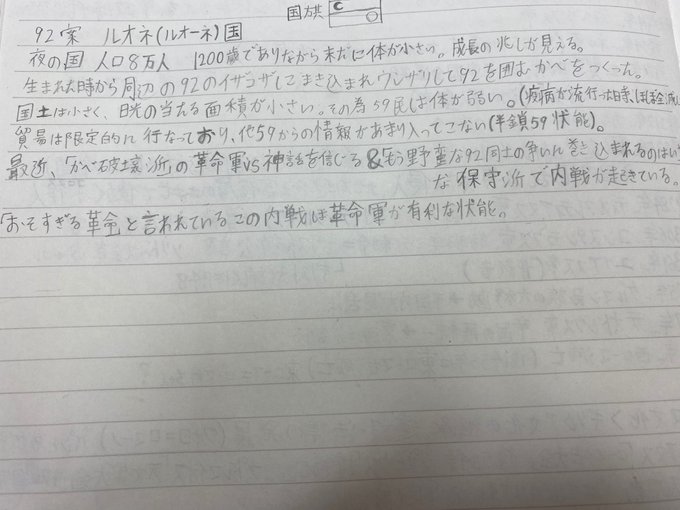 国旗
92案 ルオネ(ルオーネ)国
夜の国 人口8万人 1200歳でありながら未だに体が小さい。成長の兆しが見える。
生まれた時から周辺の92のイザコザしてまき込まれウンザリして92を囲むかべをつくった。
国土は小さく、日光の当たる面積が小さい。その為59民は体が弱い。(疫病が流行った時、ほぼ全滅し
貿易は限定的に行なっており、他59からの情報があまり入ってこない(半鎖59状態)。
最近、「かべ破壊派」の革命軍vs神話を信じる&「もう野蛮な92同士の争いに巻き込まれるのはい
な保守派で内戦が起きている。
「おそすぎる革命」と言われているこの内戦は革命軍が有利な状態。